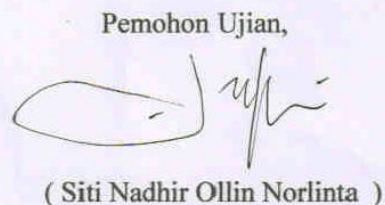 Pemohon Ujian,
( Siti Nadhir Ollin Norlinta )